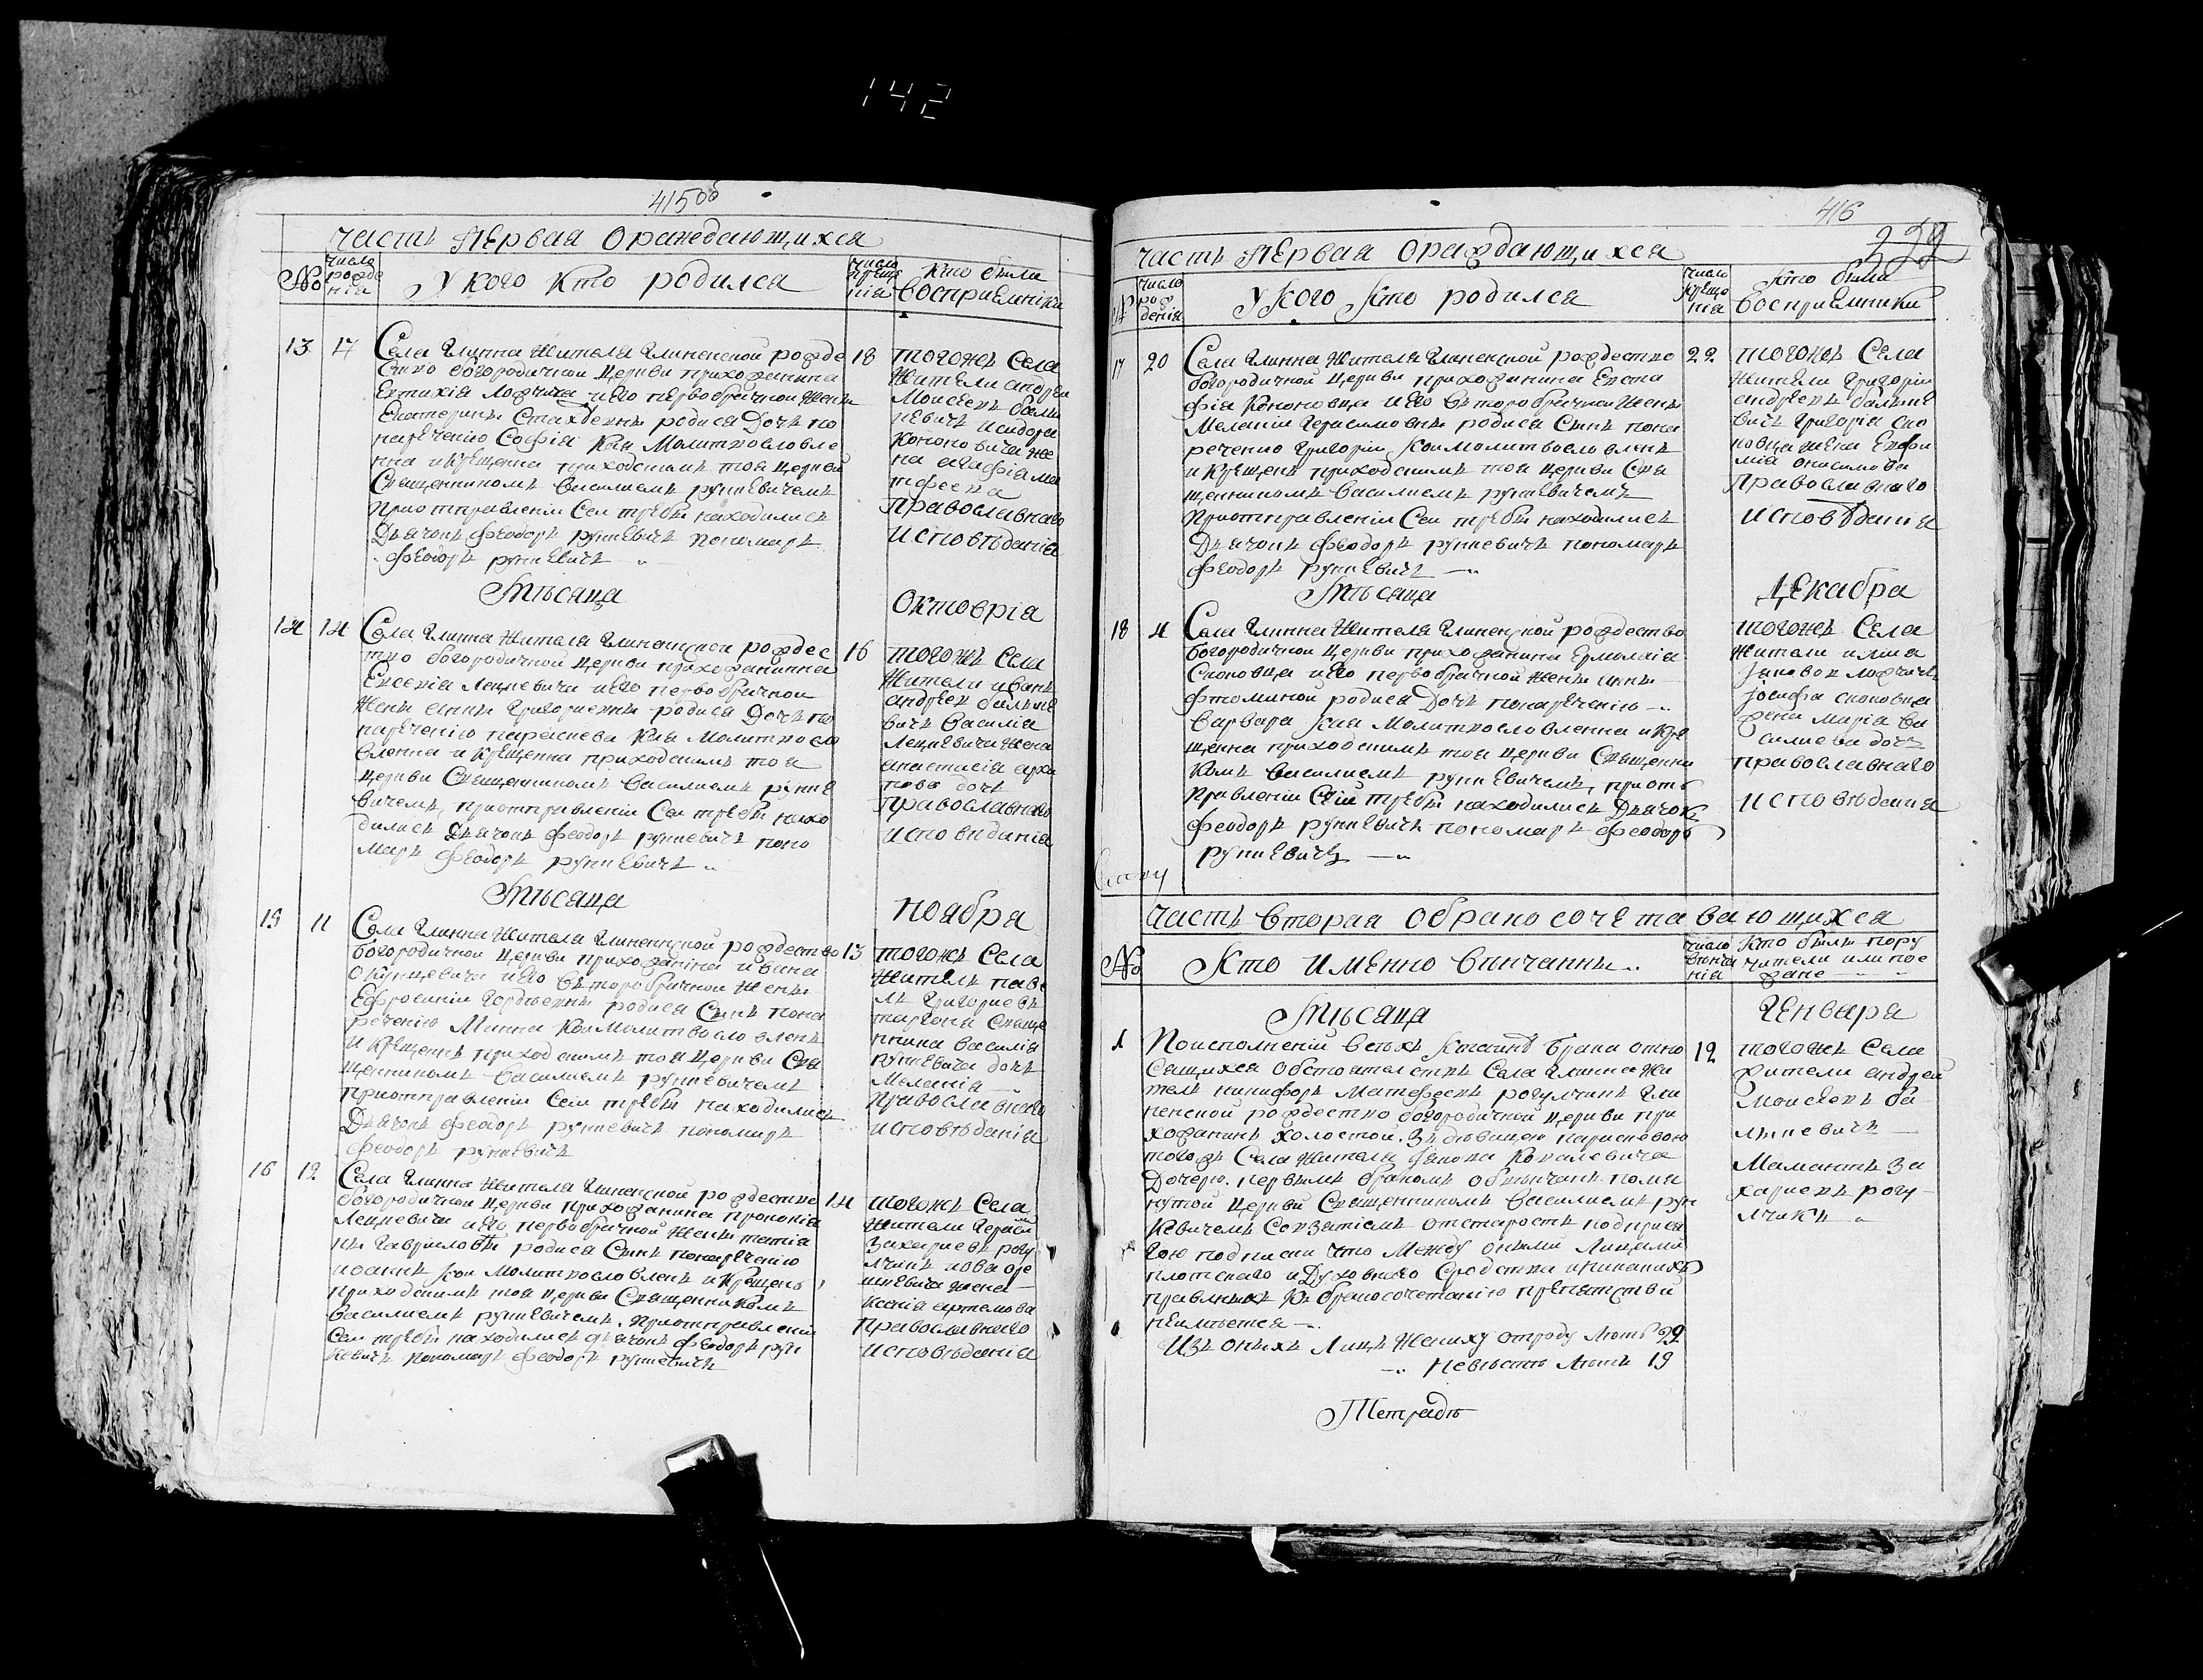 142
415об
часть первая ораждающихся
№
число рожде нія
У кого кто родился
число креще нія
кто были восприемники
13 17
Села Глинна жителя Глиненской рожде
18
ство богородичной церкви прихожанина
Евтихія Ложчича и его первобрачной жены
Екатерины родися Дочь по
наречению Софія коя Молитвословле
нна и крещенна приходскимъ тоя церкви
Священникомъ Василиемъ рункевичемъ
При отправленіи Сеи требы находились
Дьячокъ феодоръ рункевичъ пономарь
феодоръ рункевичъ
тогожъ Села
Жители андрей
Моисеевъ
Кононовича же
на агафія ма
тфеева
православнаго
исповѣданія
Мѣсяца
Октоврія
14 14
Села Глинна жителя Глиненской рождес
16
тво богородичной церкви прихожанина
Евсевія Лецкевича и его первобрачной
жены анны Григориевны родися Дочь по
наречению параскева коя Молитвосло
вленна и крещенна приходскимъ тоя
церкви Священникомъ Василиемъ рунке
вичемъ, при отправленіи Сеи требы нахо
дились Дьячокъ феодоръ рункевичъ поно
марь феодоръ рункевичъ
тогожъ Села
Жители иванъ
андреевъ
вичъ Василія
Лецкевича жена
анастасія архи
пова дочь
православнаго
исповиданія
Мѣсяца
Ноября
15 11
Села Глинна жителя Глиненской рождество
13
богородичной церкви прихожанина ивана
Окунцевича и его второбрачной жены
Ефросиніи Гордѣевны родися Сынъ пона
речению Минна кои Молитвословленъ
и крещенъ приходскимъ тоя церкви Свя
щенникомъ Василиемъ рункевичемъ
при отправленіи Сеи требы находились
Дьячокъ феодоръ рункевичъ пономарь
феодоръ рункевичъ
тогожъ Села
Житель паве
лъ Григориевъ
Свяще
нника Василія
рункевича дочь
Меланія
православнаго
исповѣданія
16 12
Села Глинна жителя Глиненской рождество
14
богородичной церкви прихожанина прокопія
Лецкевича и его первобрачной жены татіа
ны Гавриловны родися Сынъ понаречению
иоаннъ кои Молитвословленъ и крещенъ
приходскимъ тоя церкви Священникомъ
Василиемъ рункевичемъ. При отправленіи
Сеи требы находились дьячокъ феодоръ рун
кевичъ пономарь феодоръ рункевичъ
тогожъ Села
Жители Герасим
Захариевъ рогу
льчикъ
жена
Ксенія артемова
православнаго
исповѣданія
416
часть первая ораждающихся
число рож денія
У кого кто родился
число креще нія
кто были восприемники
17 20
Села Глинна жителя Глиненской рождество
22
богородичной церкви прихожанина Евста
фія Кононовца и его второбрачной жены
Меланіи Герасимовны родися Сынъ пона
речению григорій кои Молитвословленъ
и крещенъ приходскимъ тоя церкви Свя
щенникомъ Василиемъ рункевичемъ
При отправленіи Сеи требы находились
Дьячокъ феодоръ рункевичъ пономарь
феодоръ рункевичъ
тогожъ Села
Жители григорій
андреевъ
вичъ григорія ско
повца жена Евфи
мія анисимова
Православнаго
исповѣданія
Мѣсяца
Декабра
18 4
Села Глинна жителя Глиненской рождество
богородичной церкви прихожанина Ермолаія
Скоповца и его первобрачной жены анны
фоминой родися Дочь понаречению
варвара коя Молитвословленна и кре
щенна приходскимъ тоя церкви Священни
комъ Василиемъ рункевичемъ, при отъ
правленіи Сеій требы находились Дьячокъ
феодоръ рункевичъ пономарь феодоръ
рункевичъ
тогожъ Села
Жители илиа
Іаковов ложчичъ
Іосифа скоповца
жена Марія ва
силиева дочь
православнаго
исповѣданія
часть вторая о бракосочетавающихся
№
Кто имено винчанны
число винча нія
Кто были пору чители или пое зжане
Мѣсяца
Генвара
1
По исполненій всѣхъ ктаинѣ брака отно
12
сящихся обстоятелствъ Села Глинна жи
тель никифоръ Матфеевъ рогулчикъ Гли
ненской рождество богородичной церкви при
хожанинъ холостой, зъ дѣвицею параскевою
тогожъ Села жителя Іакова Ковалевича
Дочерю. первымъ бракомъ обвѣнчанъ помя
нутой церкви Священникомъ Василиемъ рун
кевичемъ Созятіемъ отстаростъ подприся
гою подписки что Между оными Лицами
плотскаго и Духовнаго Сродства
правныхъ къ бракосочетанію препятствій
неимѣется
Изъ оныхъ Лицъ Жениху отроду лѣтъ 22
Невѣстѣ лѣтъ 19
Тетрадь
тогожъ Села
жители андрей
Моисеевъ ба
лкевичъ
Мамантъ за
хариевъ рогу
льчикъ